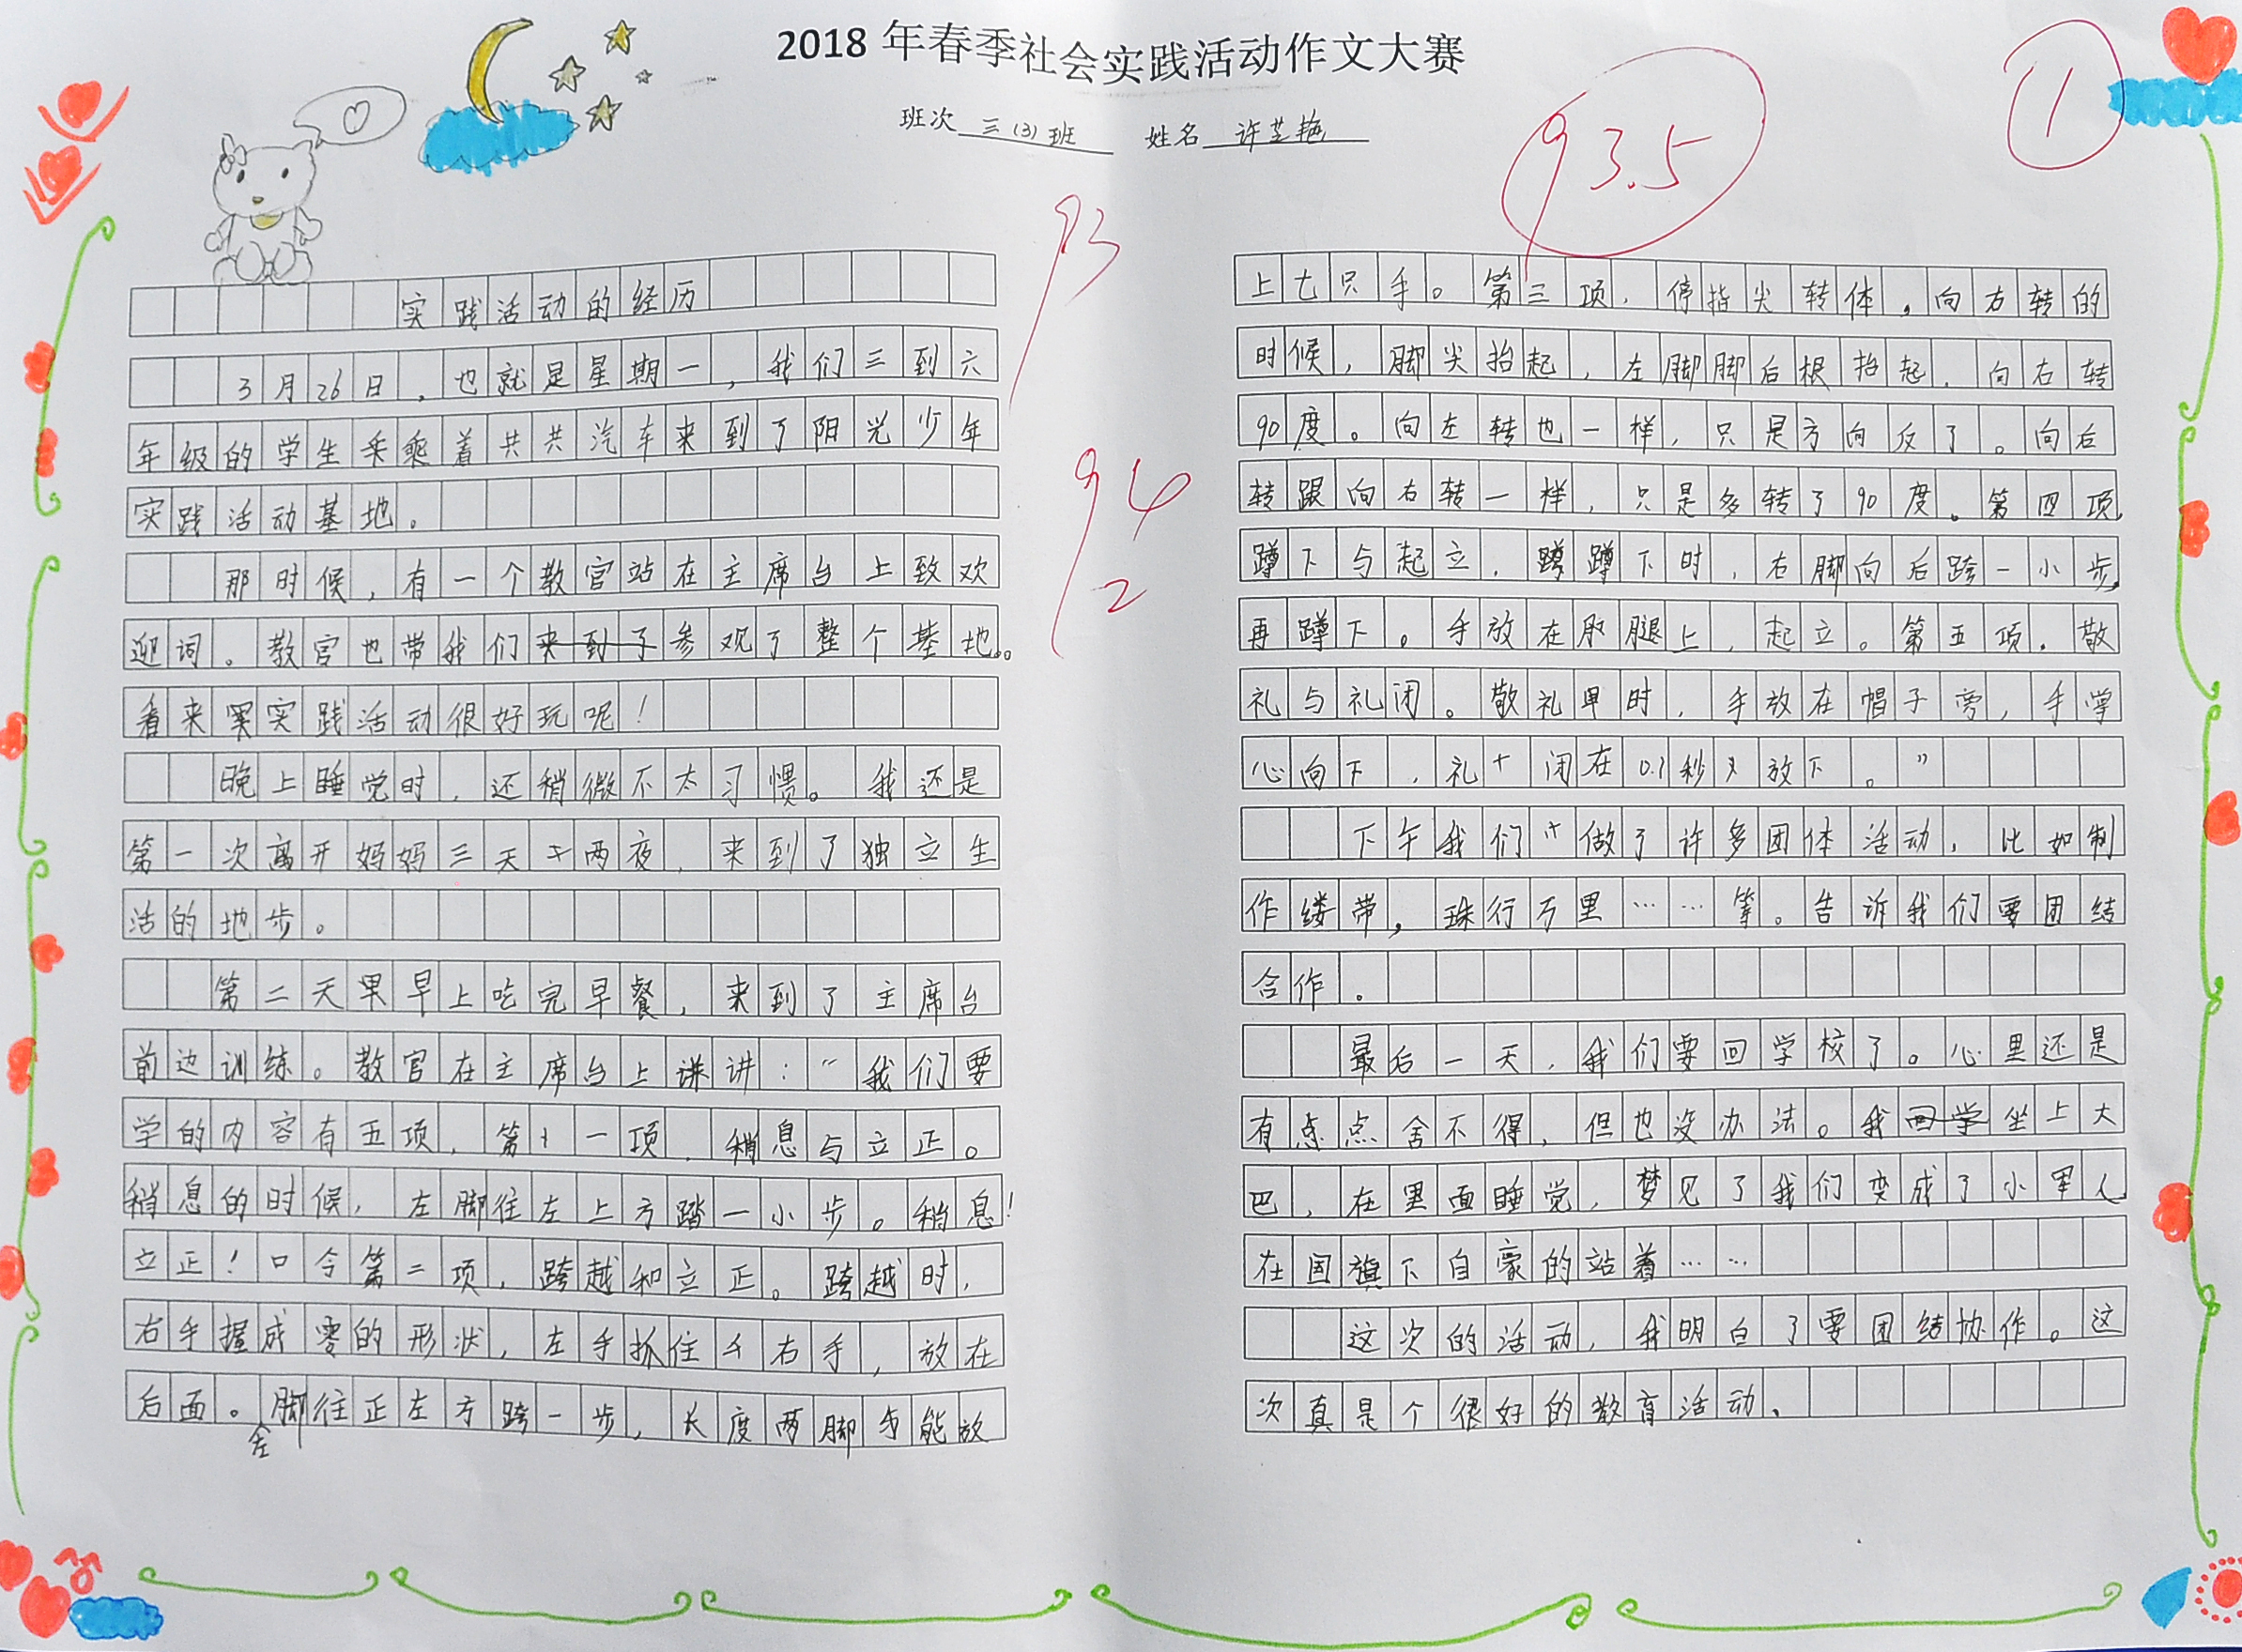 2018 年春季社会实践活动作文大赛
班次 三(3)班 姓名 许芝艳
93.5
①
93
94
2
实践活动的经历
3月26日，也就是星期一，我们三到六
年级的学生乘乘着共共汽车来到了阳光少年
实践活动基地。
那时候，有一个教官站在主席台上致欢
迎词。教官也带我们来到了参观了整个基地。
看来实践活动很好玩呢！
晚上睡觉时，还稍微不太习惯。我还是
第一次离开妈妈三天两夜，来到了独立生
活的地步。
第二天早早上吃完早餐，来到了主席台
前边训练。教官在主席台上讲讲："我们要
学的内容有五项，第一项，稍息与立正。
稍息的时候，左脚往左上方踏一小步。稍息！
立正！口令第二项，跨越和立正。跨越时，
右手握成零的形状，左手抓住右手，放在
后面。左脚往正左方跨一步，长度两脚能放
上七只手。第三项，停指尖转体，向右转的
时候，脚尖抬起，左脚脚后根抬起，向右转
90度。向左转也一样，只是方向反了。向后
转跟向右转一样，只是多转了90度。第四项，
蹲下与起立，蹲蹲下时，右脚向后跨一小步，
再蹲下。手放在腿上，起立。第五项，敬
礼与礼闭。敬礼单时，手放在帽子旁，手掌
心向下，礼闭在0.1秒放下。"
下午我们做了许多团体活动，比如制
作缕带，珠行万里……等。告诉我们要团结
合作。
最后一天，我们要回学校了。心里还是
有点点舍不得，但也没办法。我回学坐上大
巴，在里面睡觉，梦见了我们变成了小军人
在国旗下自豪的站着……
这次的活动，我明白了要团结协作。这
次真是个很好的教育活动、